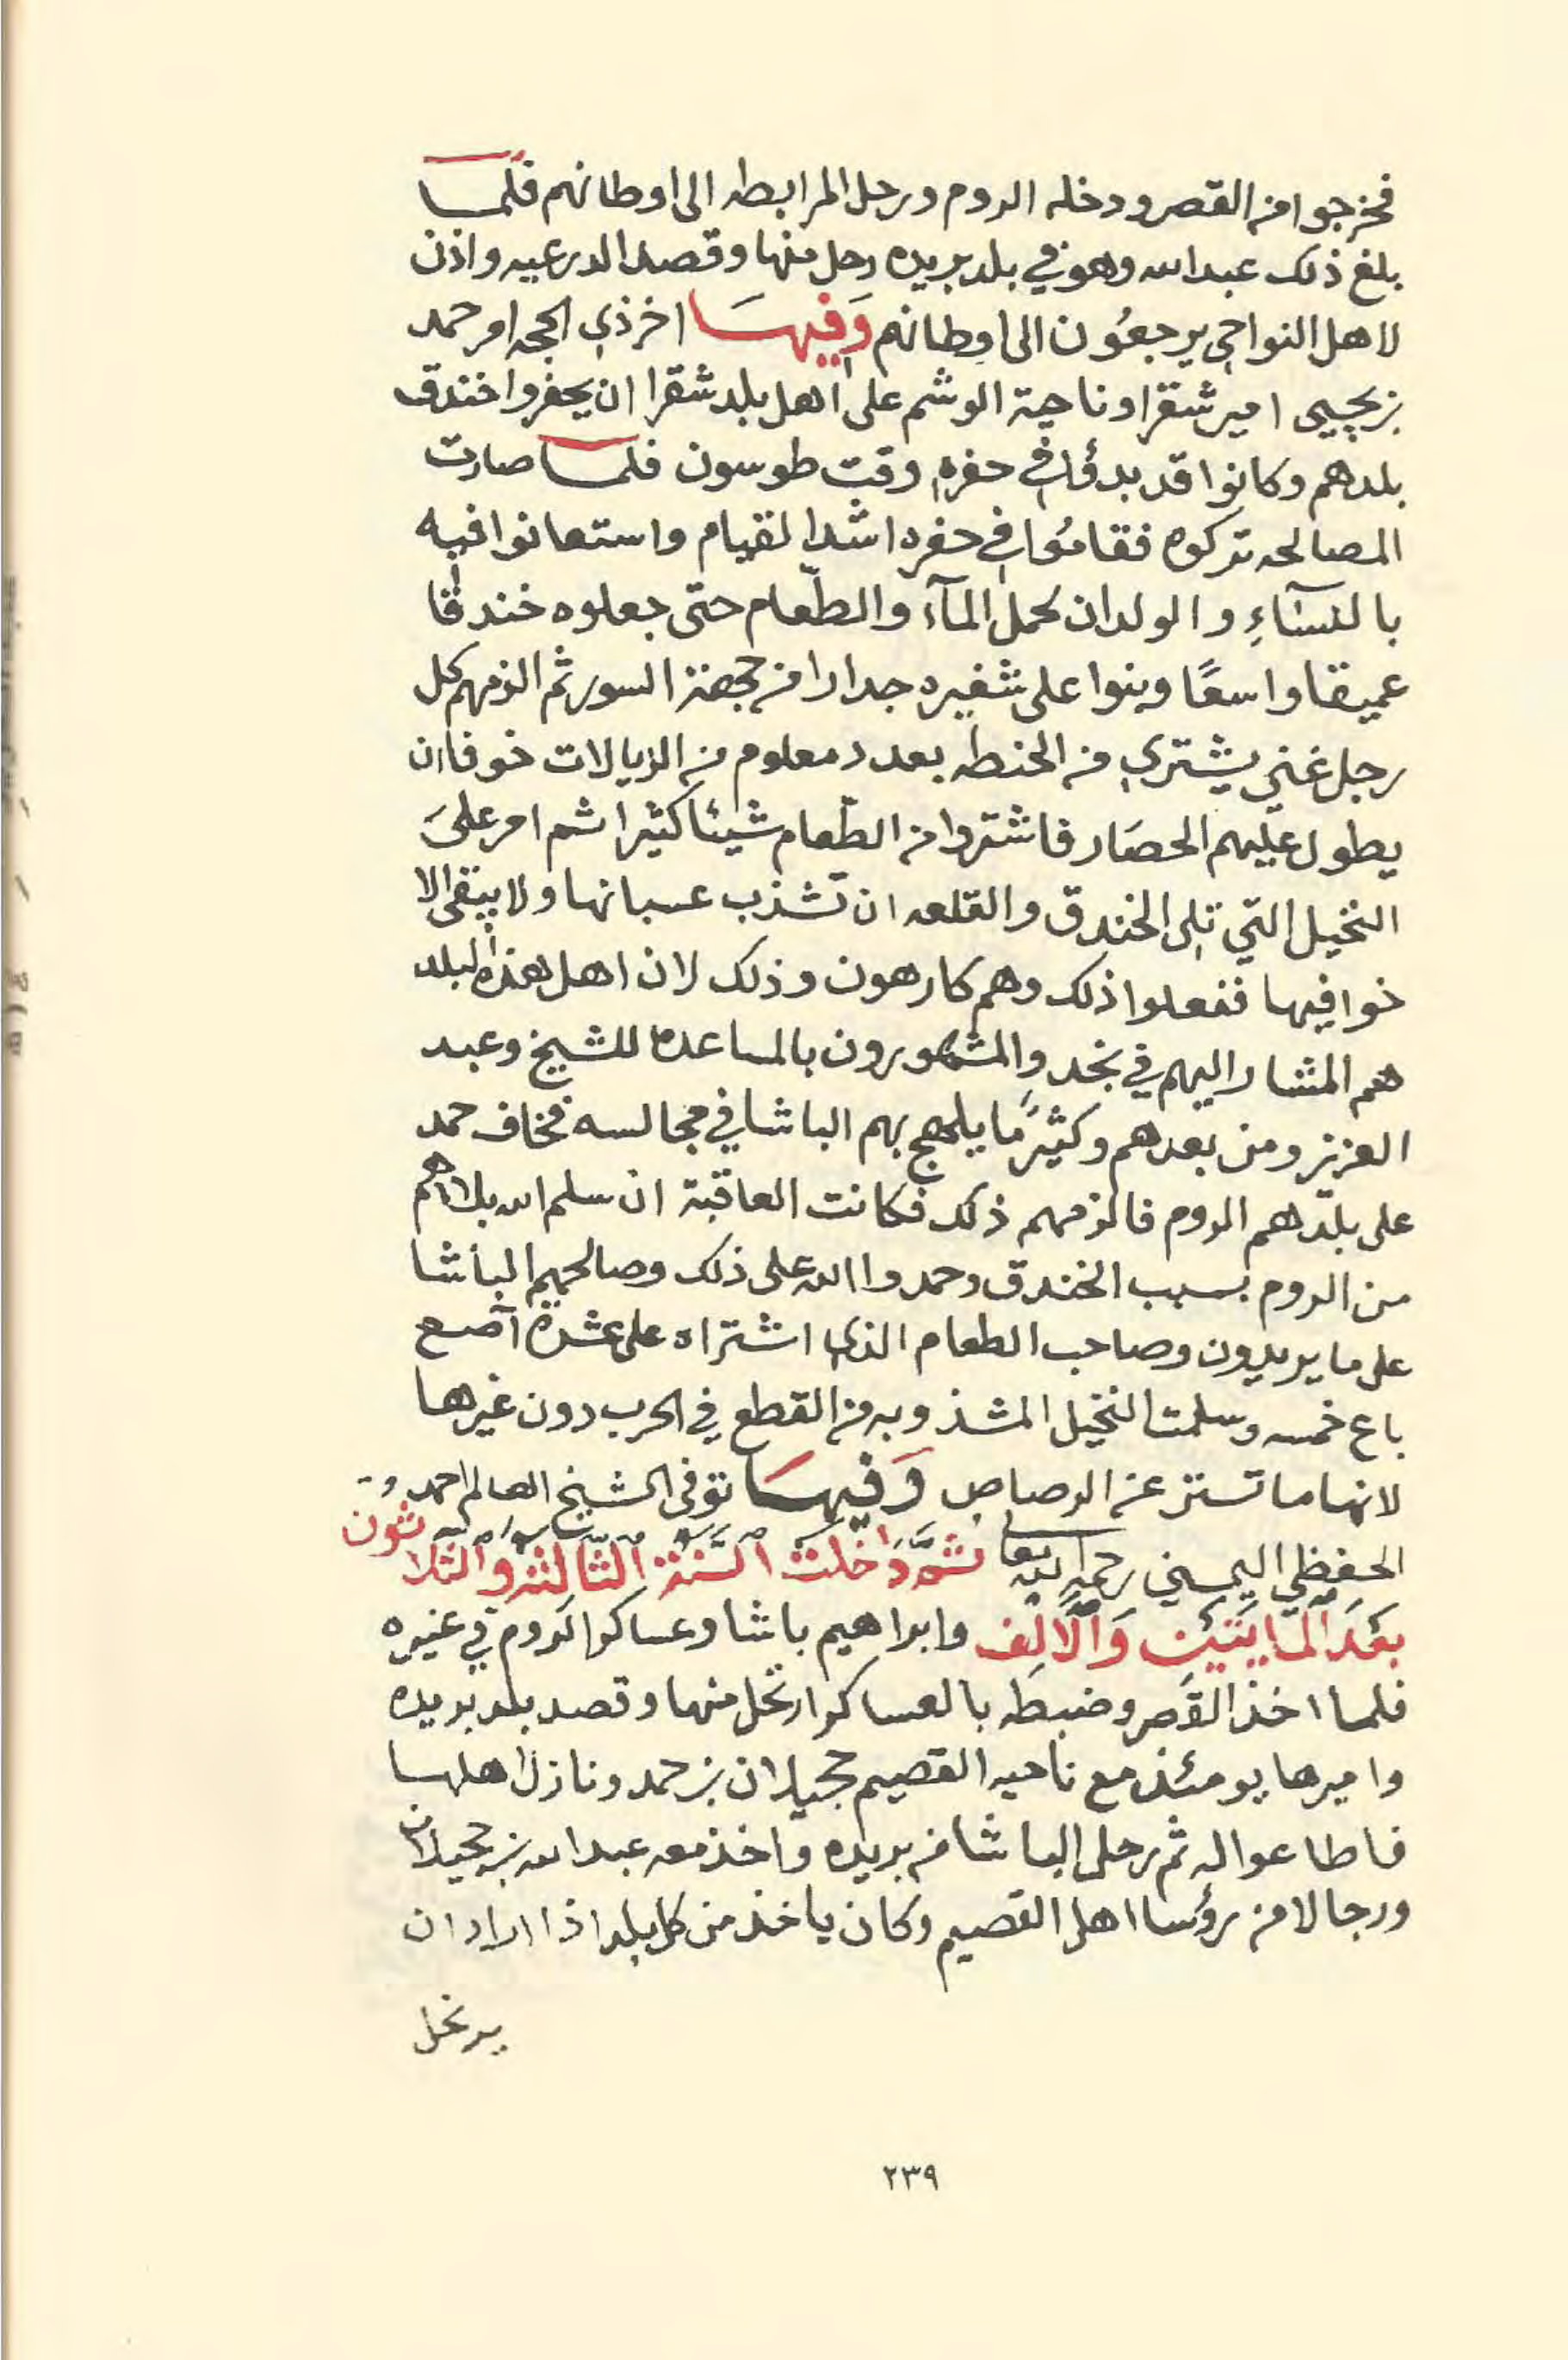 فخرجوا من القصر ودخله الروم ورحل المرابطه الى اوطانهم فلما
بلغ ذلك عبدالله وهو في بلد بريده رحل منها وقصد الدرعيه واذن
لاهل النواحي يرجعون الى اوطانهم وَفيهسَا اخر ذي الحجه امر حمد
بن يحيى امير شقرا وناحية الوشم على اهل بلد شقرا ان يحفروا خندق
بلدهم وكانوا قد بدؤا في حفره وقت طوسون فلما صارت
المصالحه تركوه فقامُوا في حفره اشد القيام واستعانوا فيه
بالنسَآءِ والولدان لحمل المآء والطّعام حتى جعلوه خندقا
عميقا واسعًا وبنوا على شفيره جدارا من جهة السور ثم الزمهم كل
رجل غني يشتري من الحنطه بعدد معلوم من الريالات خوفا ان
يطول عليهم الحصَار فاشتروا من الطّعام شيئا كثيرا ثم امر علىَ
النخيل التي تلى الخندق والقلعه ان تشذب عسبانها ولا يبقى الا
خوافيها ففعلوا ذلك وهم كارهون وذلك لان اهل هذه البلد
هم المشار اليهم في نجد والمشهورون بالمساعدة للشيخ وعبد
العزيز ومن بعدهم وكثيرًما يلهج بهم الباشا في مجالسه فخاف حمد
على بلدهم الروم فالزمهم ذلك فكانت العاقبة ان سلم الله بلادهم
من الروم بسبب الخندق وحمدوا الله على ذلك وصالحهم الباشا
على ما يريدون وصاحب الطعام الذي اشتراه على عشرة آصع
باع خمسه وسلمت النخيل المشذوبه من القطع في الحرب دون غيرها
لانها ما تستر عن الرصاص وَفيهسَا توفى الشيخ العالم احمد
الحفظي اليمني رحمه الله تعا ثمَّ دَاخلت السَّنة الثالثه والثلاثون
بعَدَ المايتَيَنِ وَالَالف وابراهيم باشا وعساكر الروم في عنيزه
فلما اخذ القصر وضبطه بالعساكر ارتحل منها وقصد بلد بريده
واميرها يومئذ مع ناحيه القصيم حجيلان بن حمد ونازل اهلها
فاطاعوا له ثم رحل الباشا من بريده واخذ معه عبدالله بن حجيلان
ورجالا من رؤسا اهل القصيم وكان ياخذ من كل بلد اذا اراد ان
يرتحل
٢٣٩